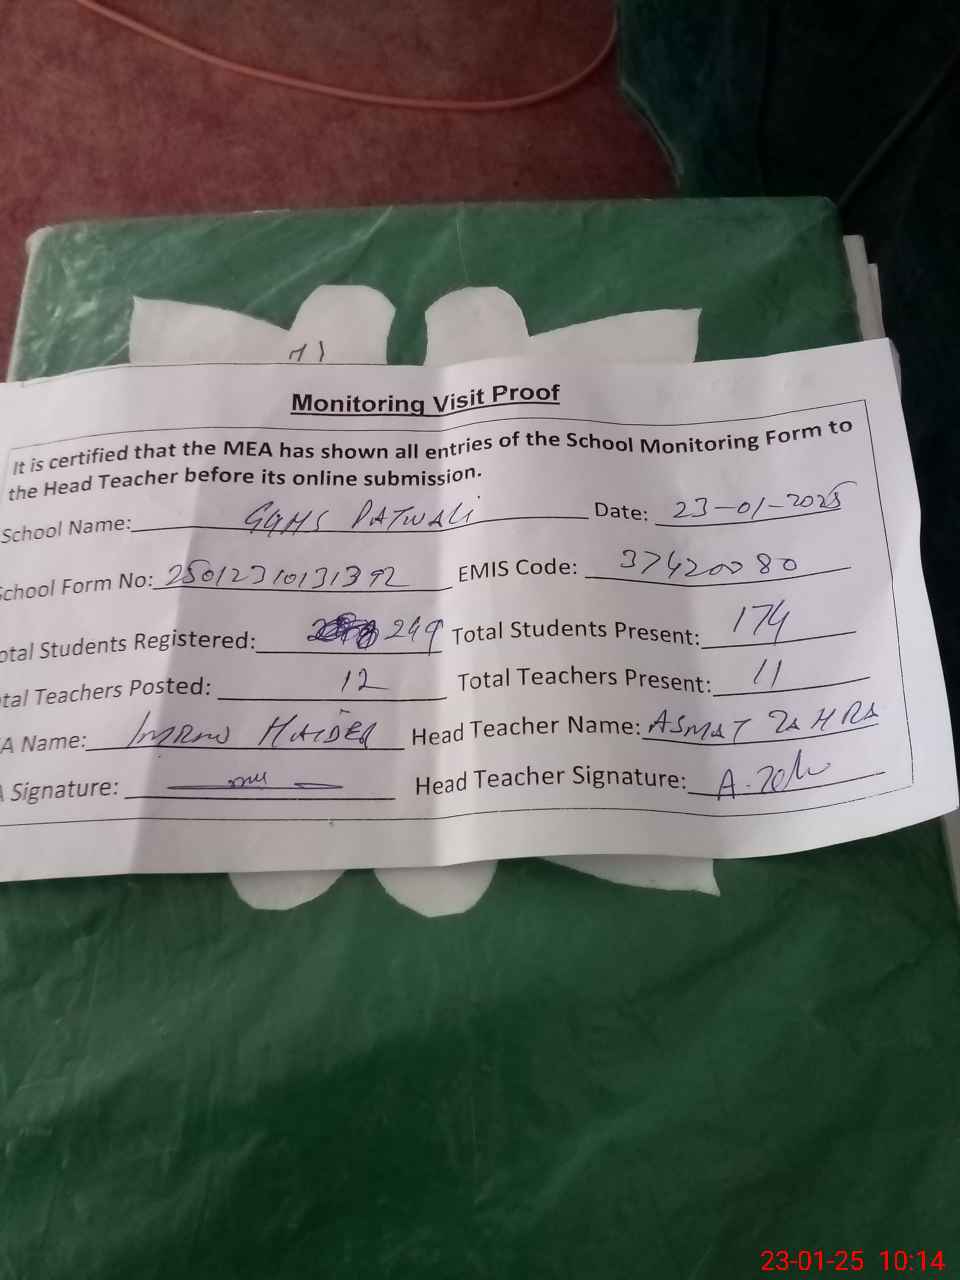 Monitoring Visit Proof
It is certified that the MEA has shown all entries of the School Monitoring Form to
the Head Teacher before its online submission.
School Name: GGHS PATWALI Date: 23-01-2025
School Form No: 25012310131392 EMIS Code: 37420080
otal Students Registered: 249 Total Students Present: 174
tal Teachers Posted: 12 Total Teachers Present: 11
A Name: IMRAN HAIDER Head Teacher Name: ASMAT ZAHRA
A Signature: Head Teacher Signature:
23-01-25 10:14